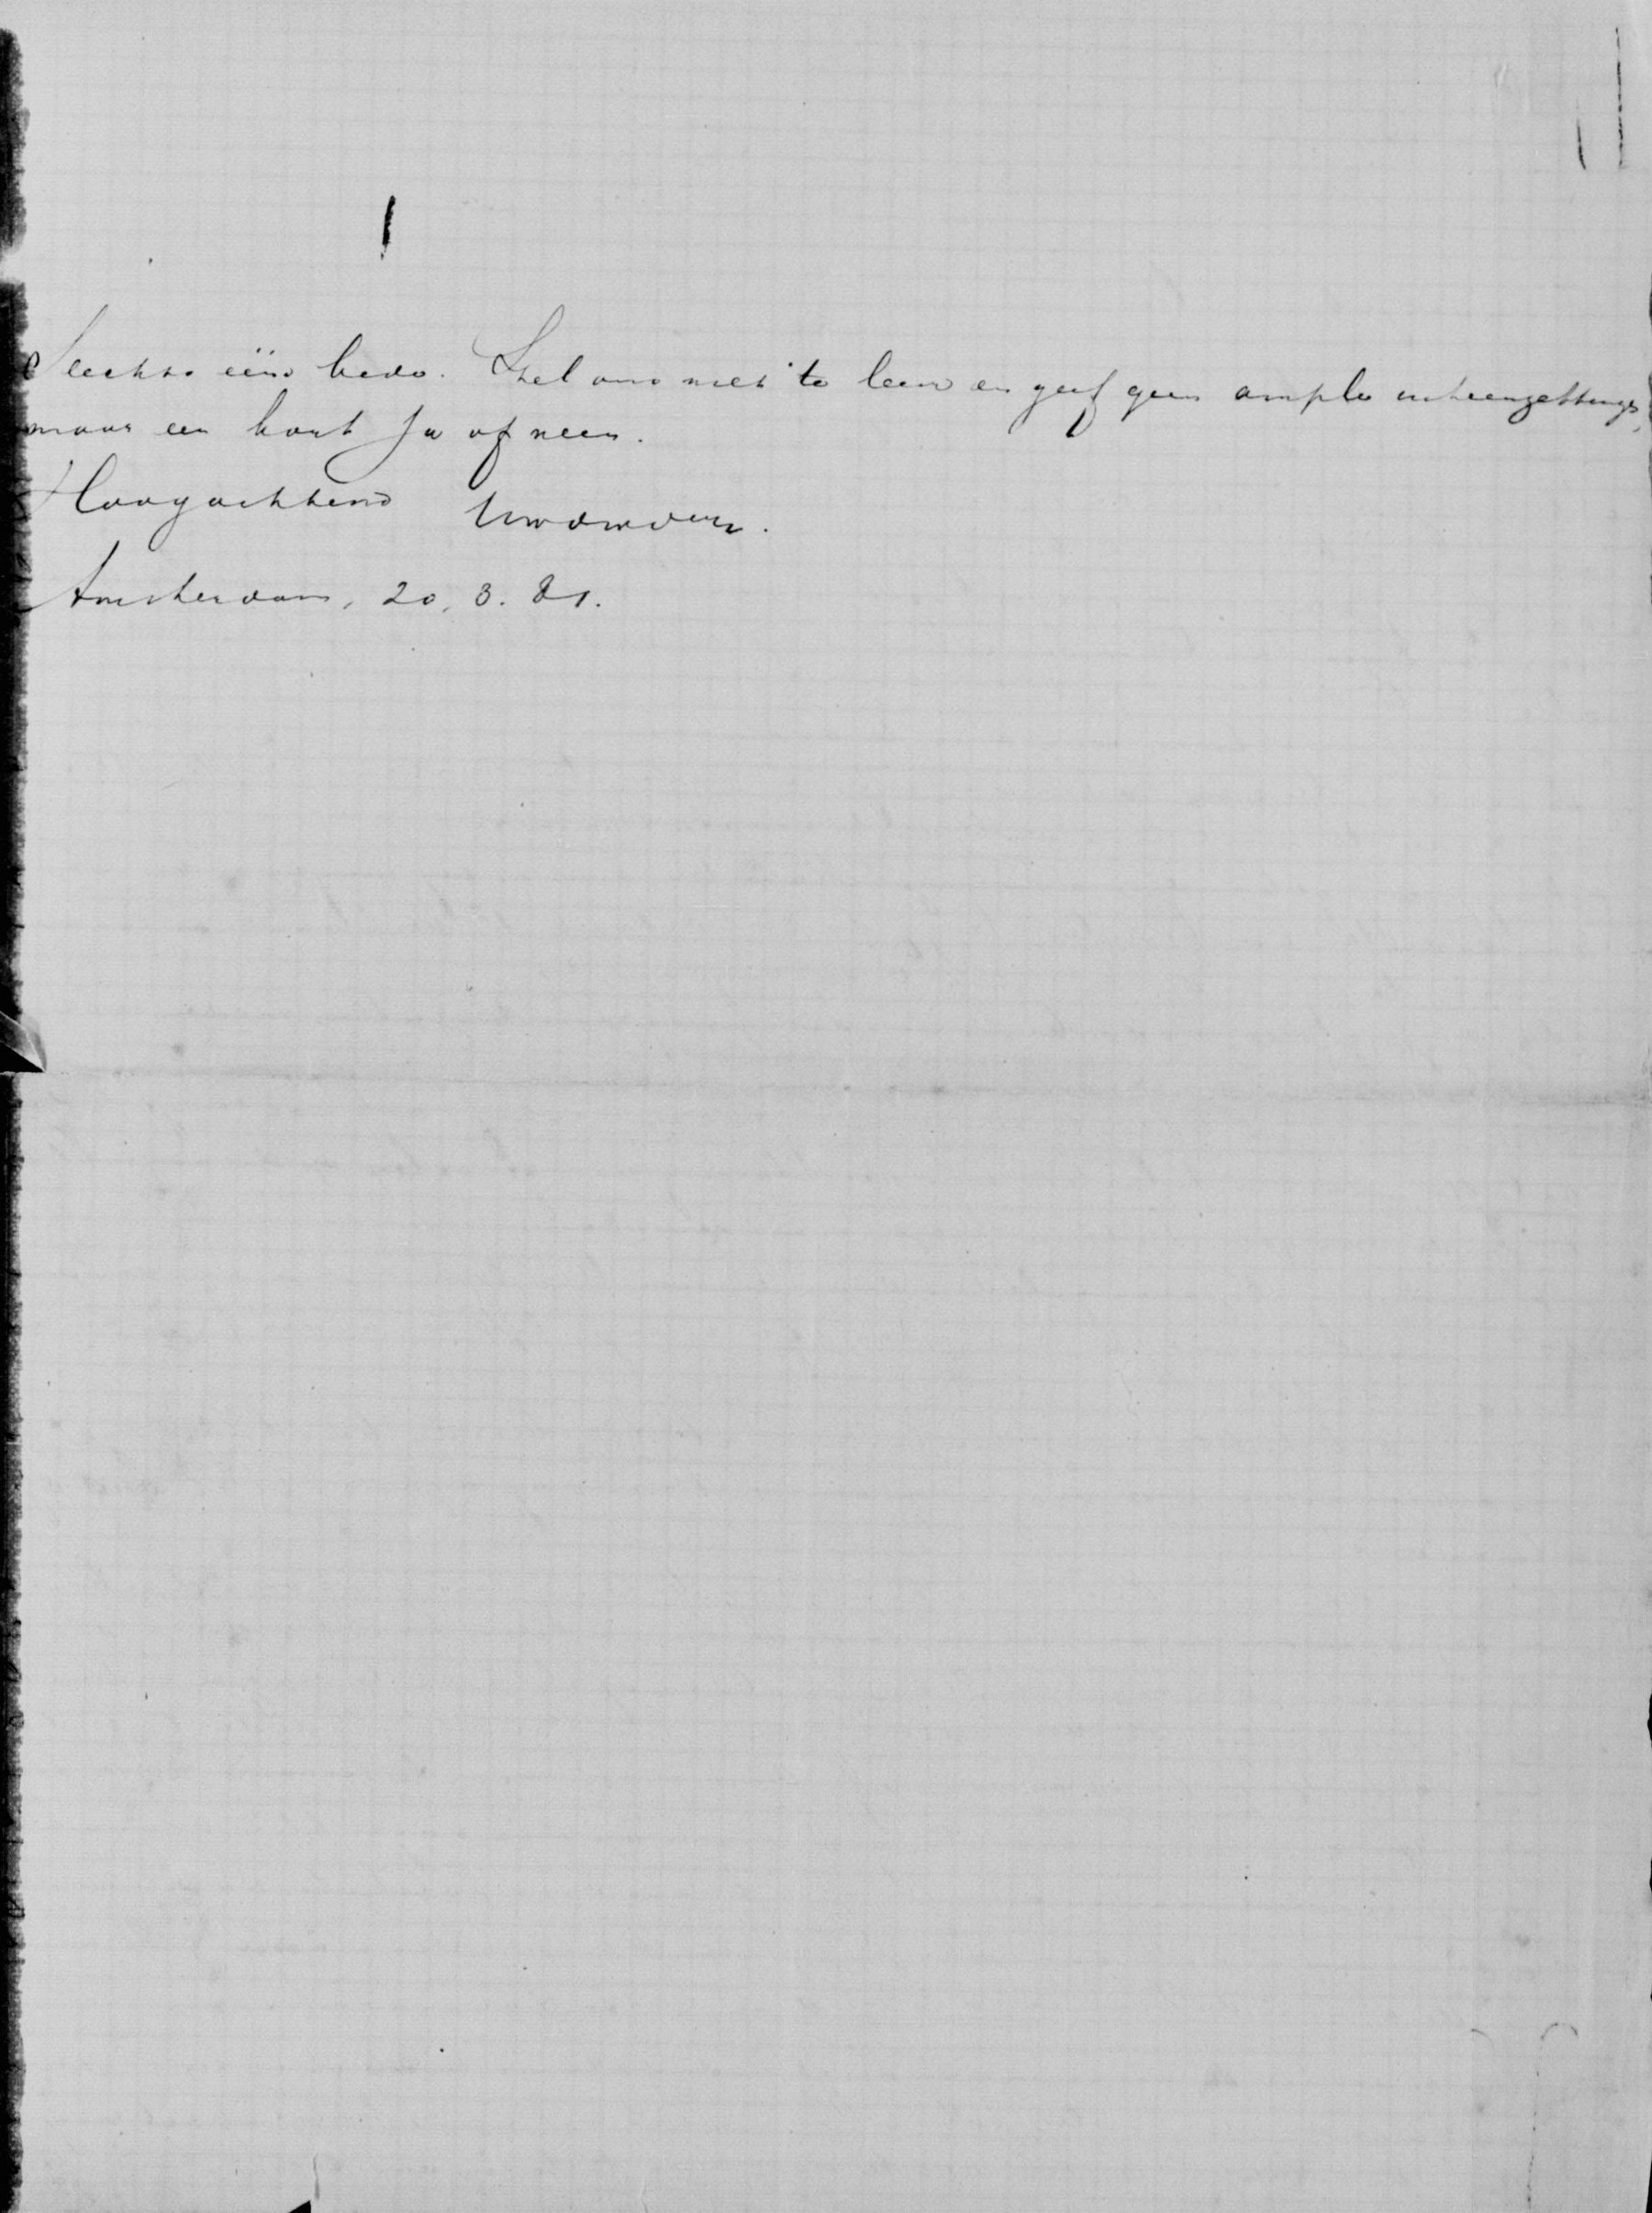 Slechts één bede. Stel ons niet te leur en geef geen ample uiteenzettings,
maar een kort Ja of neen.
Hoogachtend
Amsterdam, 20. 3. 81.